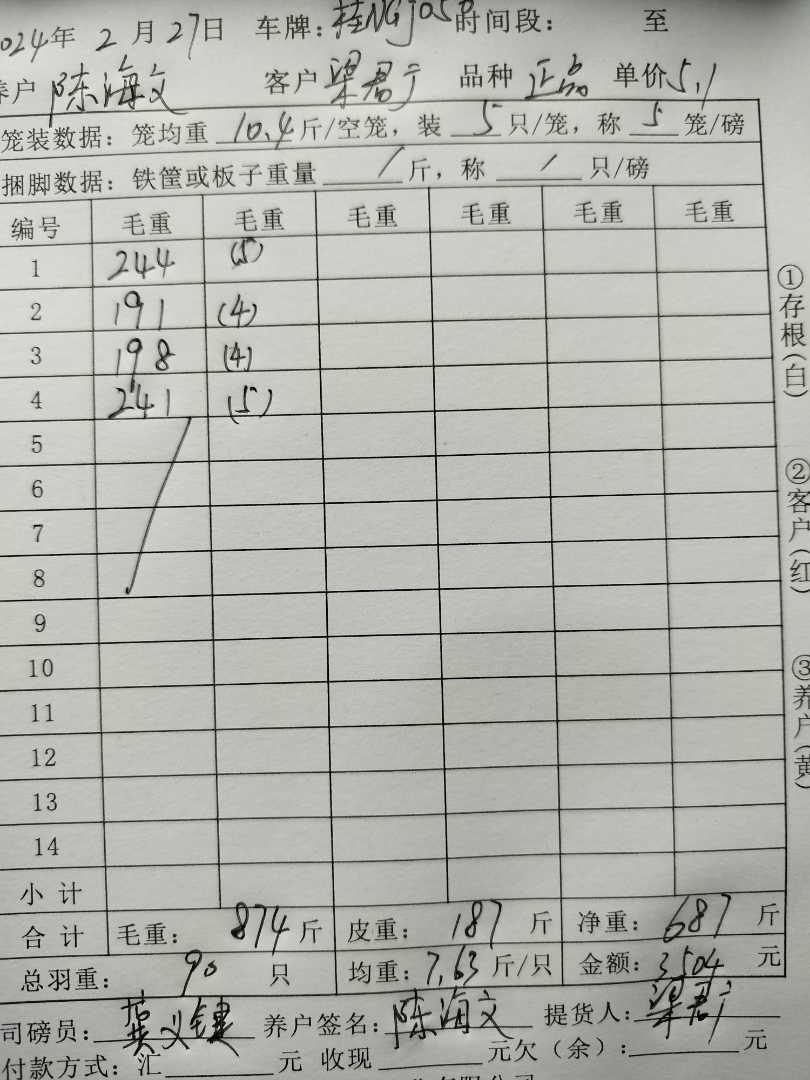 2024年 2 月 27日 车牌: 桂NGJ05P 时间段: 至
养户 陈海文 客户 梁君广 品种 正品 单价 5.1
笼装数据: 笼均重 10.4 斤/空笼, 装 5 只/笼, 称 5 笼/磅
捆脚数据: 铁筐或板子重量 / 斤, 称 / 只/磅
编号 毛重 毛重 毛重 毛重 毛重 毛重
1 244 (5)
2 191 (4)
3 198 (4)
4 241 (5)
5
6
7
8
9
10
11
12
13
14
小计
合计 毛重: 874 斤 皮重: 187 斤 净重: 687 斤
总羽重: 90 只 均重: 7.63 斤/只 金额: 3504 元
司磅员: 义键 养户签名: 陈海文 提货人: 梁君广
付款方式: 汇 元 收现 元欠(余): 元
①存根(白) ②客户(红) ③养户(黄)